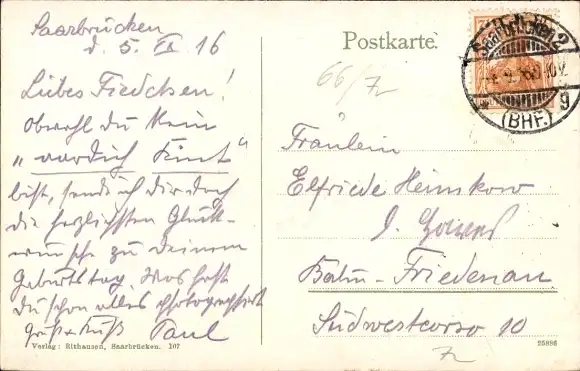 Saarbrücken
d. 5. IX 16
Liebes Friedchen!
Obwohl du kein
bist, sende ich dir doch
die herzlichsten Glück-
wünsche zu deinem
Geburtstag. Was hast
du schon alles photographiert
Gruß + Kuß Paul
Verlag: Rixhausen, Saarbrücken. 107
Postkarte.
66/
Saarbrücken 2
(BHF.)
g
Fräulein
Elfriede Heimkow
Berlin-Friedenau
Südwestcorso 10
25886